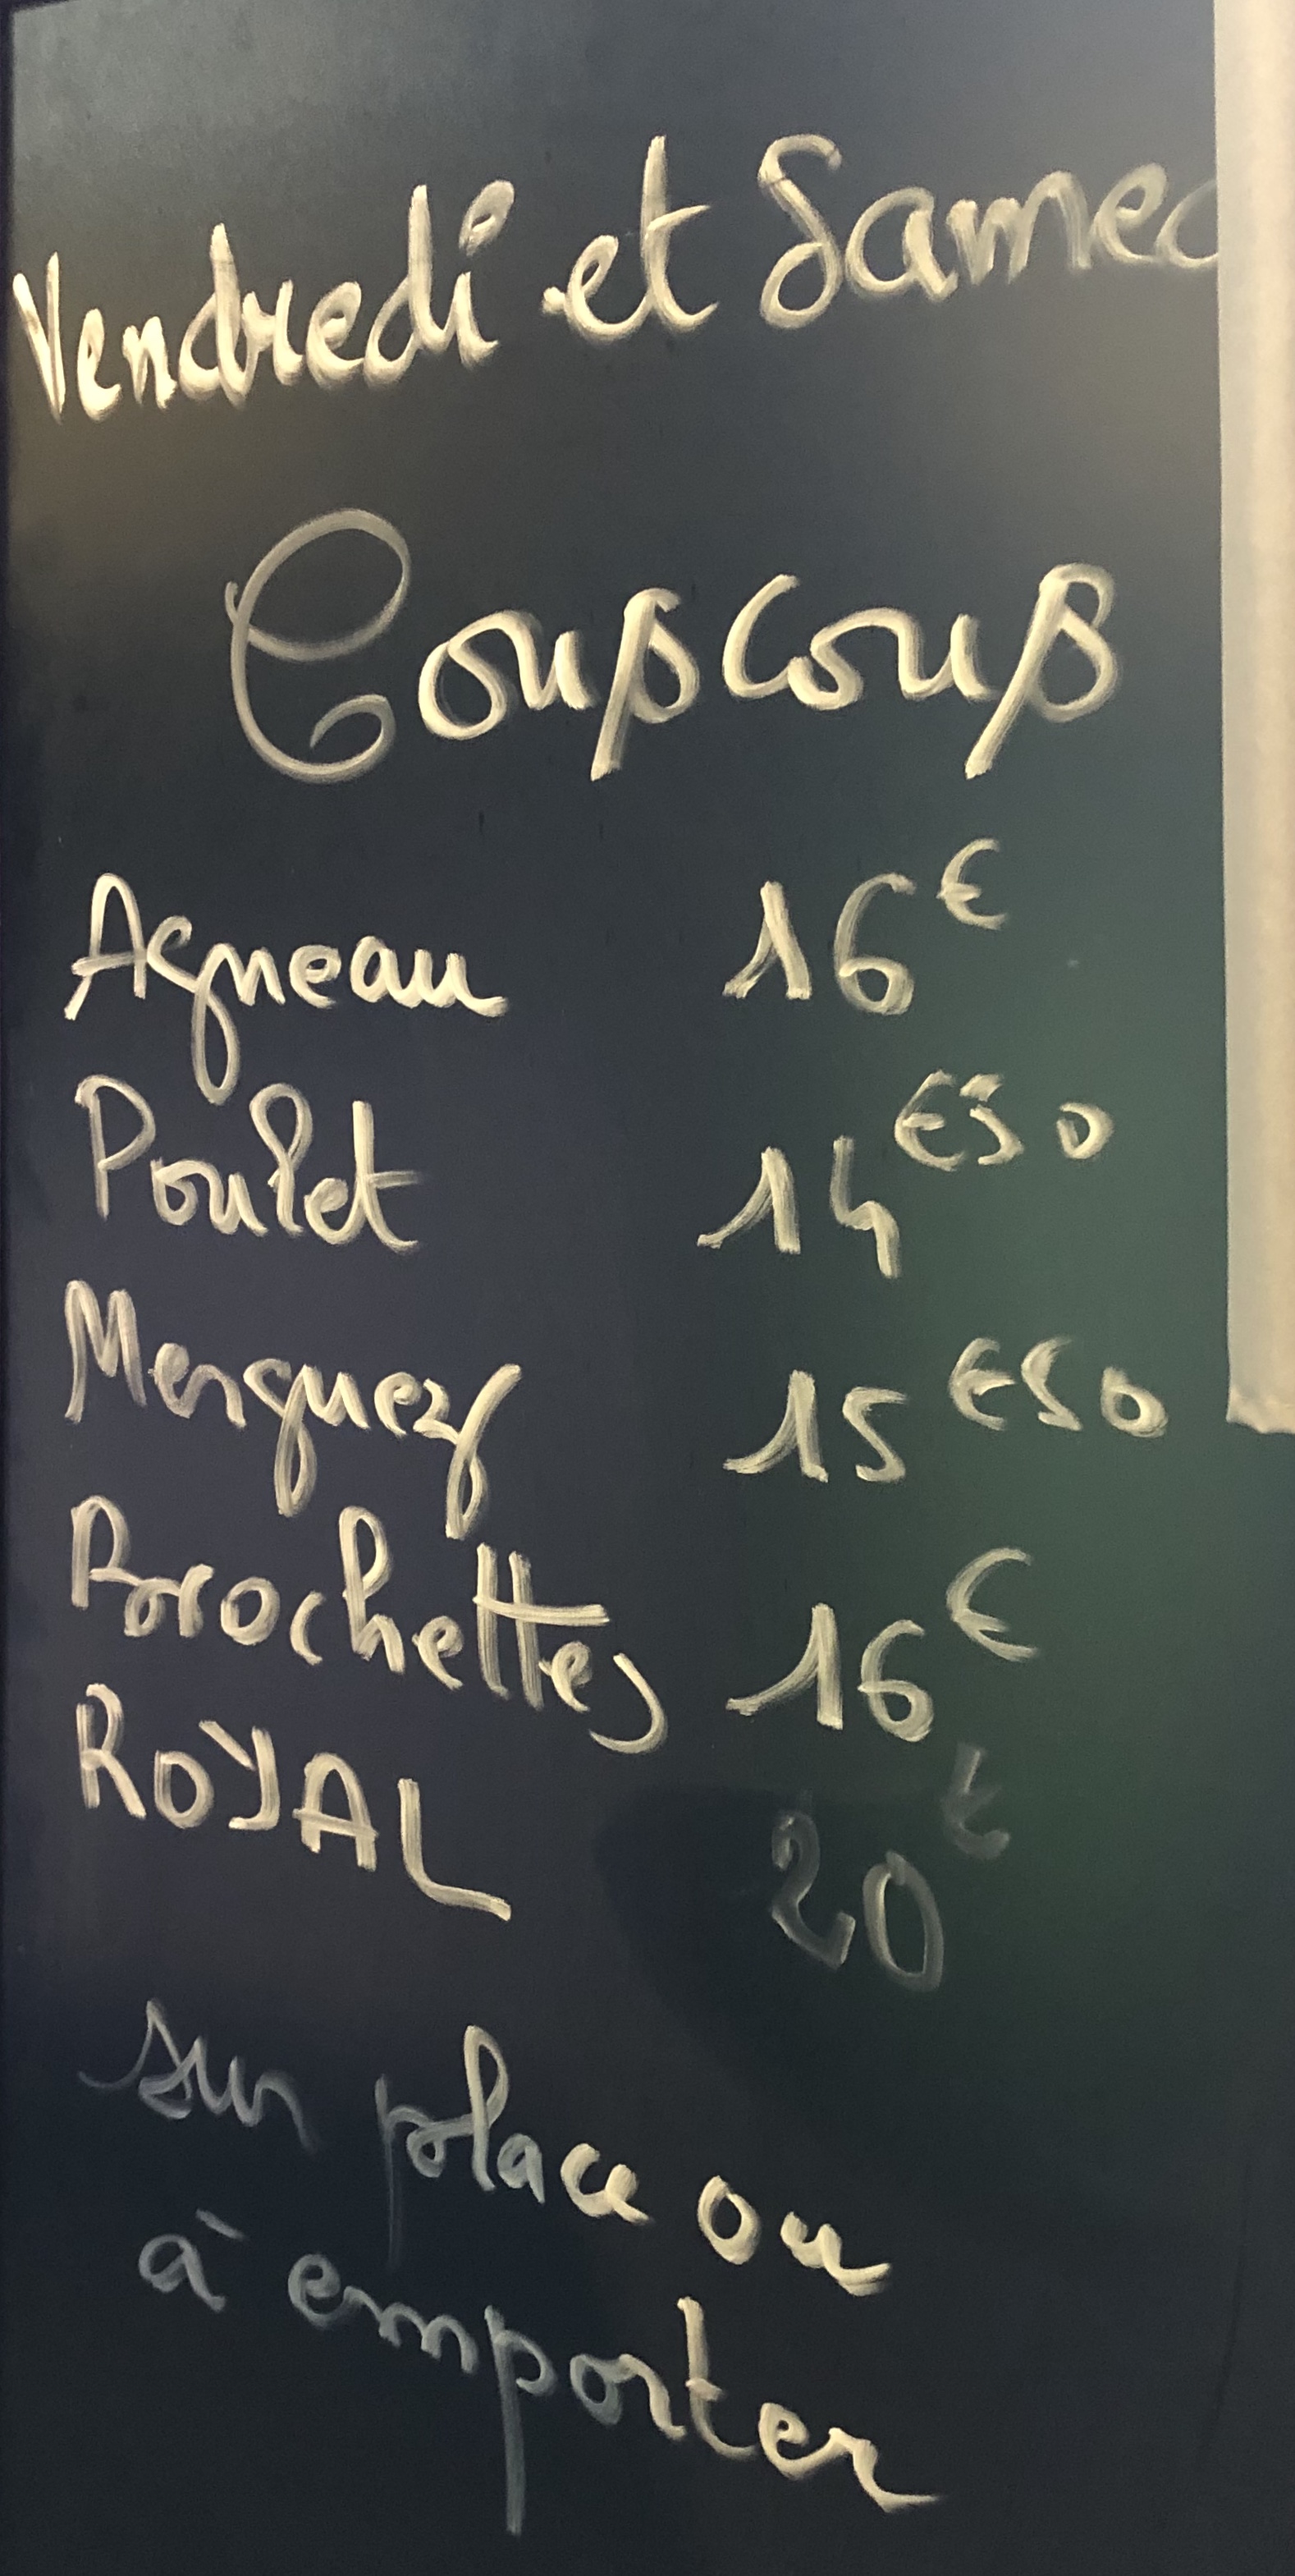 Vendredi et Samed
Couscous
Agneau 16€
Poulet 14€50
Merguez 15€50
Brochettes 16€
ROYAL 20€
sur place ou
à emporter